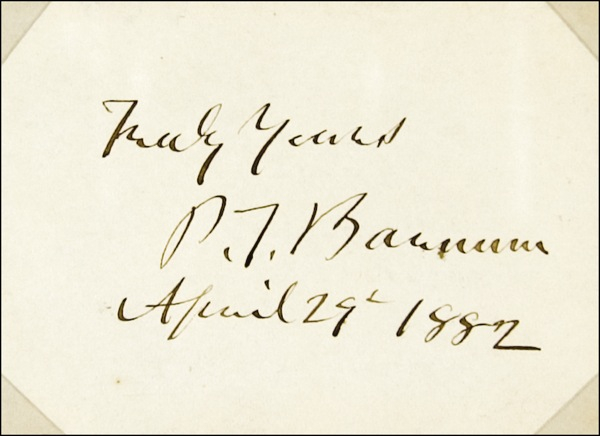 Truly Yours
P.T. Barnum
April 29ᵗ 1882